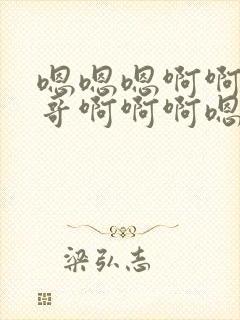 嗯嗯嗯啊啊
哥啊啊啊嗯
梁弘志